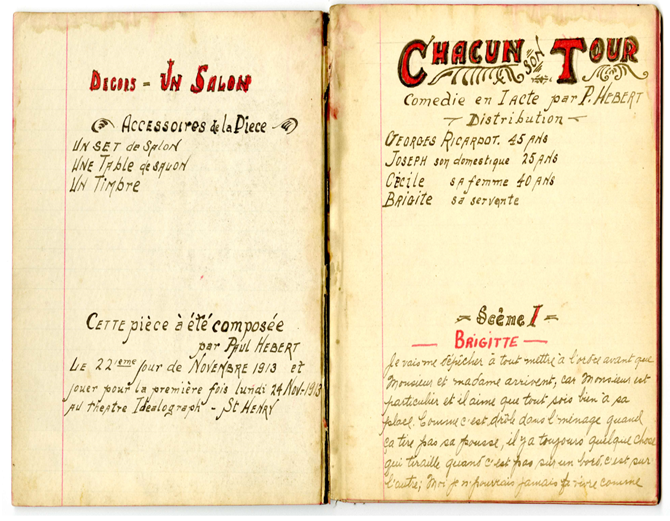 DECORS = UN SALON
ACCESSOIRES de la PIECE
UN SET de SALON
UNE TABLE de SALON
UN TIMBRE
CETTE pièce à été composée
par PAUL HEBERT
LE 22ième jour de NOVEMBRE 1913 et
jouer pour la première fois lundi 24 Nov-1913
AU theatre Idealograph - St HENRY
CHACUN SON TOUR
Comedie en 1 acte par P. HEBERT
Distribution
GEORGES RICARDOT. 45 ANS
JOSEPH son domestique 25 ANS
CÉCILE sa femme 40 ANS
BRIGITE sa servente
Scène I
BRIGITTE
Je vais me dépicher à tout mettre à l'ordre avant que
Monsieur et madame arrivent, car Monsieur est
particulier et il aime que tout sois bien à sa
place. Comme c'est drôle dans l'ménage quand
ça tire pas sa pousse, il y a toujours quelque chose
qui tiraille quand c'est pas sur un bord, c'est sur
l'autre; Moi je n'pourrais jamais vivre comme